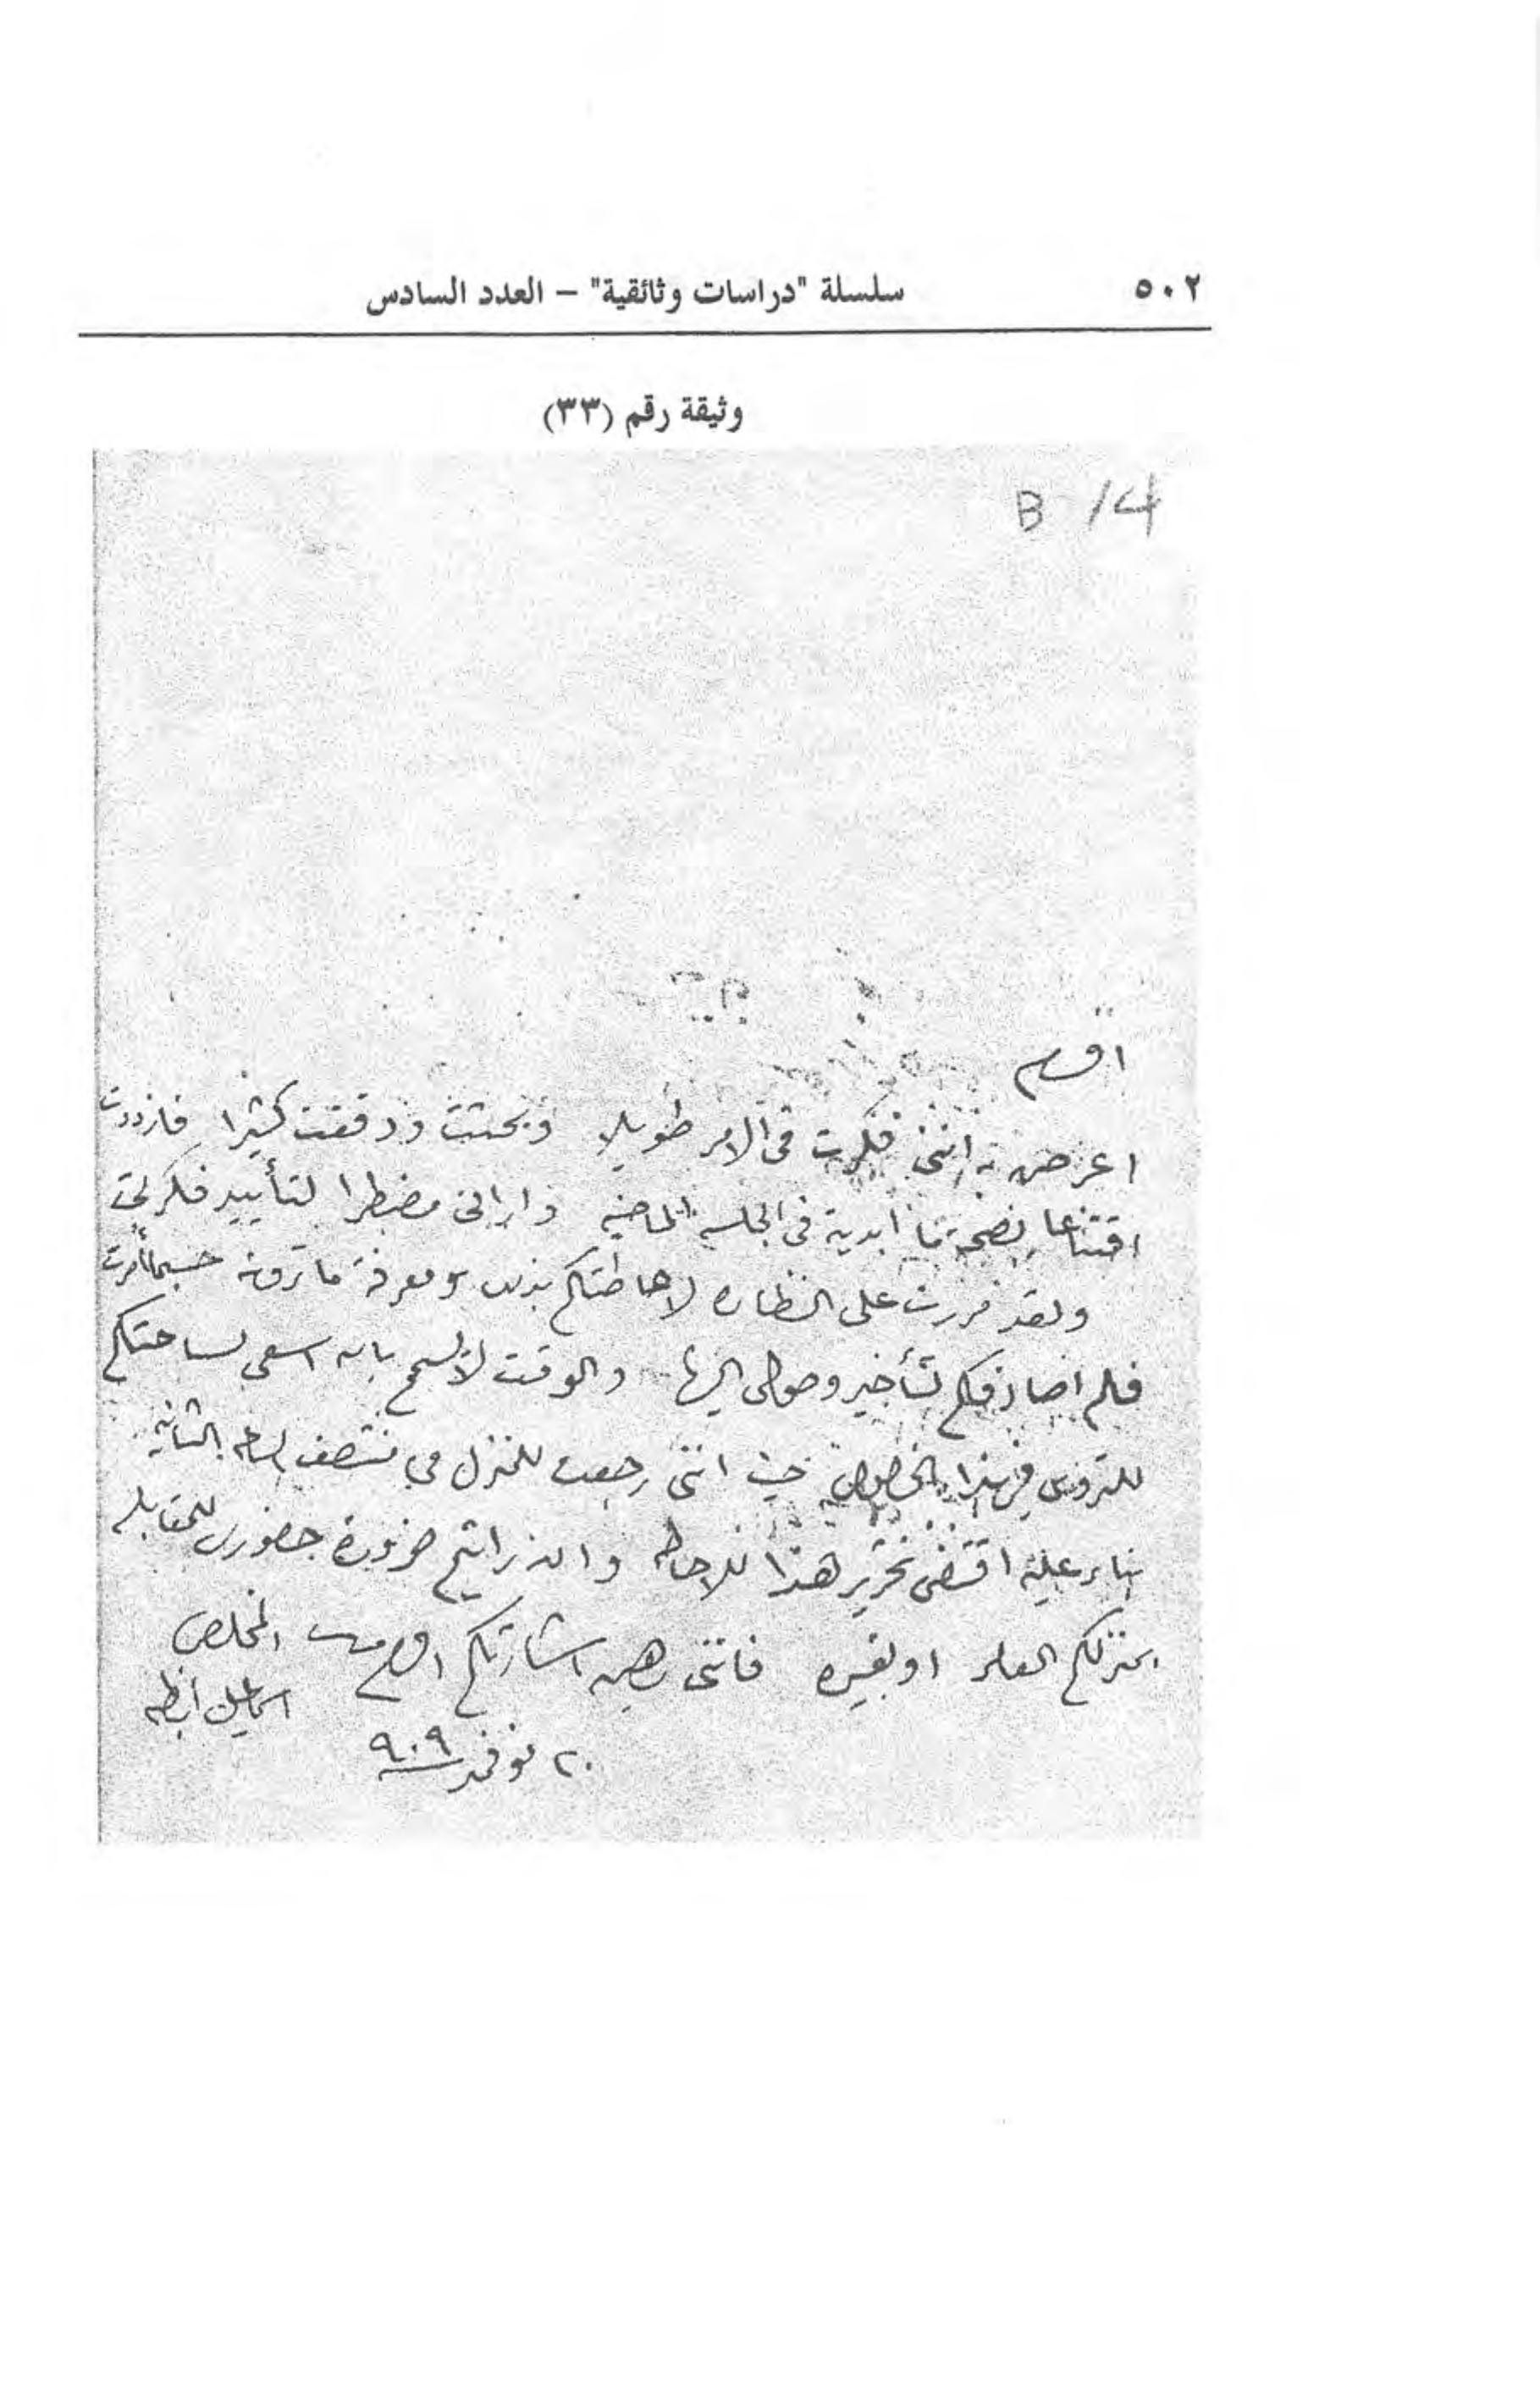 ٥٠٢
سلسلة "دراسات وثائقية" – العدد السادس
وثيقة رقم (٣٣)
B 14
اعرض انني فكرت في الامر طويلا وبحثت ودققت كثيرا فازددت
اقتناعا بصحة ما ابديته في الجلسه الماضيه وارانى مضطرا لتأييد
ولقد مررت على النظاره لاحاطتكم بذلك ومعرفة ما ترونه حسبما أمرت
فلم اصادفكم لتأخير وصولى اليها والوقت لا يسمح بان اسعى لساحتكم
في هذا الخصوص حيث انني رجعت للمنزل في منتصف الساعه الثانيه
بناء عليه اقتضى تحرير هذا للاحاطه وان رأيتم ضرورة حضورى للمقابله
بمنزلكم العامر او بغيره فانني رهين اشارتكم افندم المخلص
اسماعيل اباظه
٢٠ نوفمبر ٩٠٩